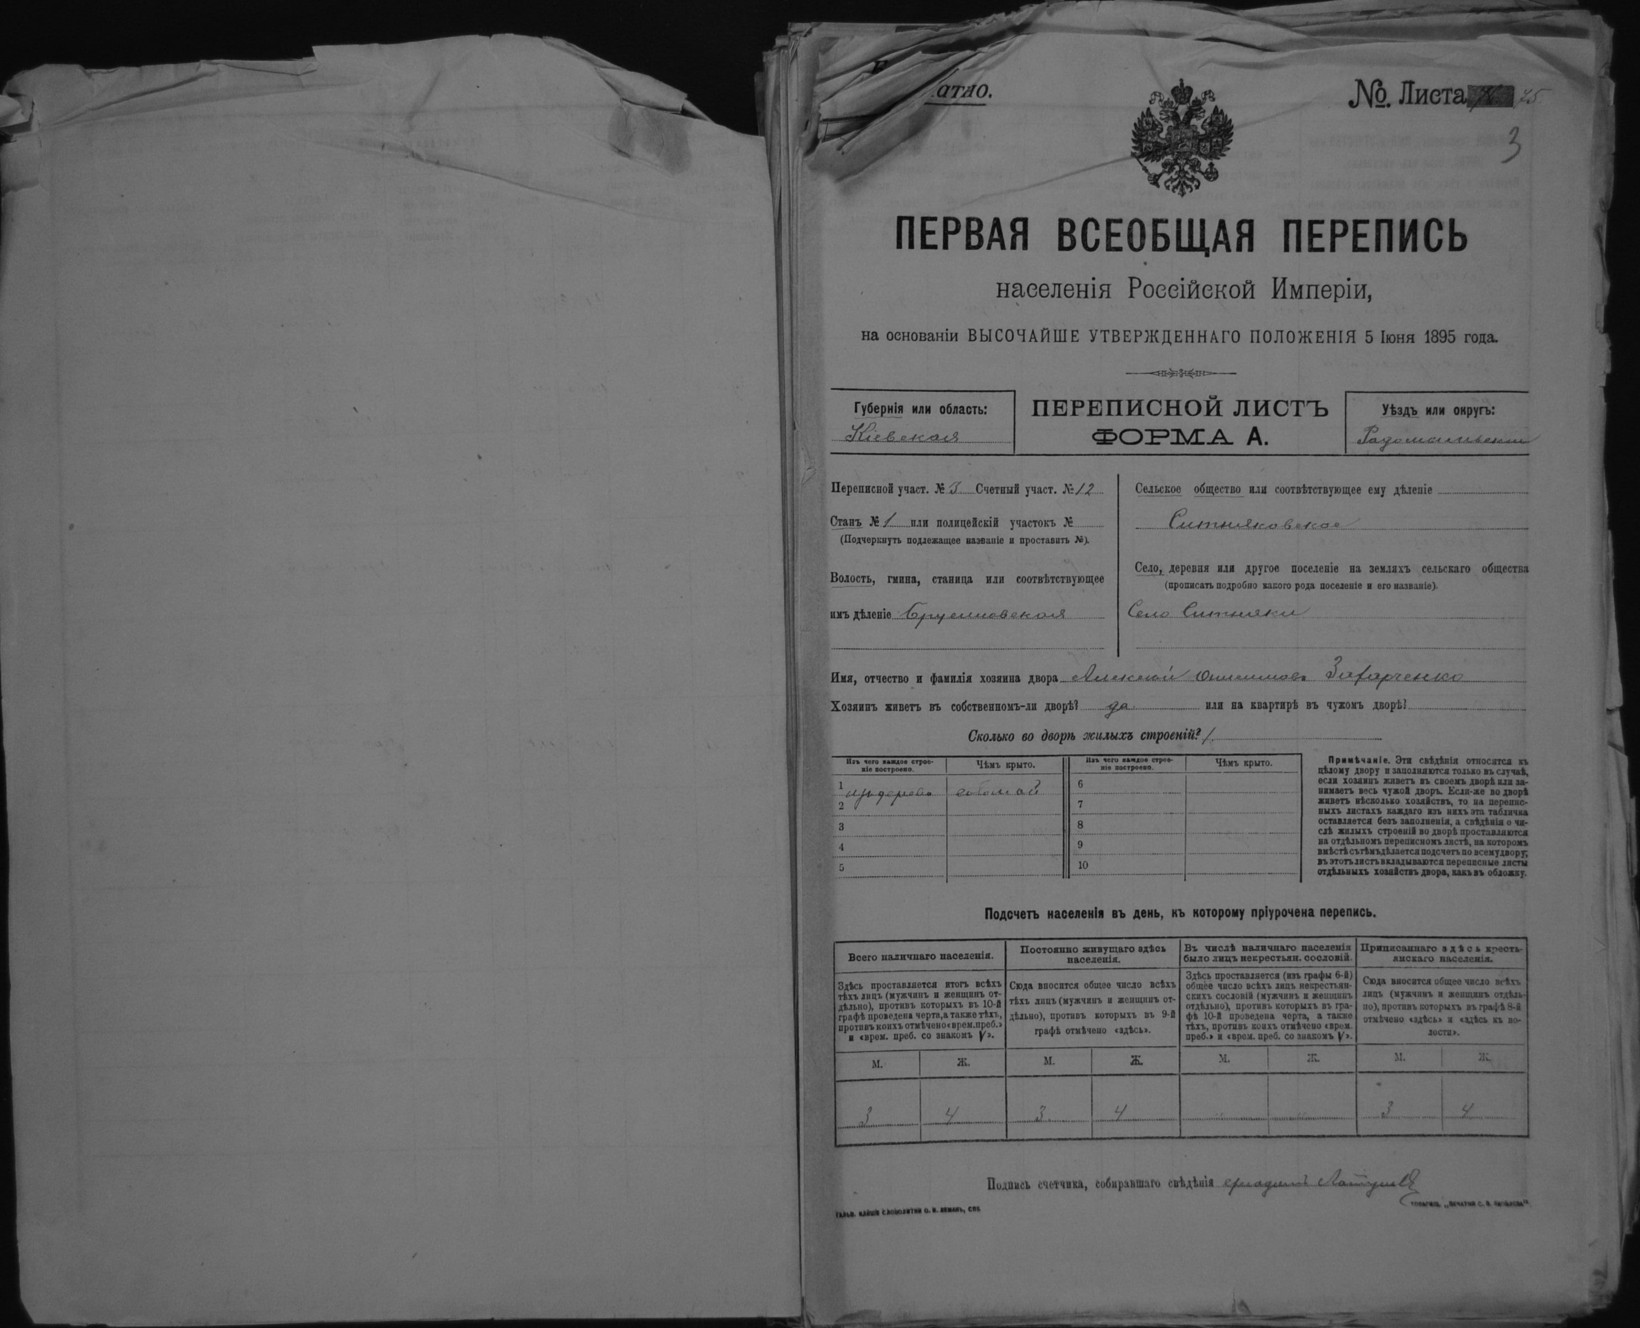 атно.
№ Листа 25
3
ПЕРВАЯ ВСЕОБЩАЯ ПЕРЕПИСЬ
населенія Россійской Имперіи,
на основаніи ВЫСОЧАЙШЕ УТВЕРЖДЕННАГО ПОЛОЖЕНІЯ 5 Іюня 1895 года.
Губернія или область:
Кіевская
ПЕРЕПИСНОЙ ЛИСТЪ
ФОРМА А.
Уѣздъ или округъ:
Радомысльскій
Переписной участ. № 3 Счетный участ. № 12
Станъ № 1 или полицейскій участокъ №
(Подчеркнуть подлежащее названіе и проставить №).
Волость, гмина, станица или соотвѣтствующее
имъ дѣленіе Брусиловская
Сельское общество или соотвѣтствующее ему дѣленіе
Ситняковское
Село, деревня или другое поселеніе на земляхъ сельскаго общества
(прописать подробно какого рода поселеніе и его названіе).
Село Ситняки
Имя, отчество и фамилія хозяина двора Алексѣй Онисимовъ Захарченко
Хозяинъ живетъ въ собственномъ-ли дворѣ? да или на квартирѣ въ чужомъ дворѣ?
Сколько во дворѣ жилыхъ строеній? 1
Изъ чего каждое строеніе построено.
Чѣмъ крыто.
Изъ чего каждое строеніе построено.
Чѣмъ крыто.
1 изъ дерева соломой
2
3
4
5
6
7
8
9
10
Примѣчаніе. Эти свѣдѣнія относятся къ
цѣлому двору и заполняются только въ случаѣ,
если хозяинъ живетъ въ своемъ дворѣ или за-
нимаетъ весь чужой дворъ. Если-же во дворѣ
живетъ нѣсколько хозяйствъ, то на перепис-
ныхъ листахъ каждаго изъ нихъ эта табличка
оставляется безъ заполненія, а свѣдѣнія о чи-
слѣ жилыхъ строеній во дворѣ проставляются
на отдѣльномъ переписномъ листѣ, на которомъ
вмѣстѣ съ тѣмъ дѣлается подсчетъ по всему двору;
въ этотъ листъ вкладываются переписные листы
отдѣльныхъ хозяйствъ двора, какъ въ обложку.
Подсчетъ населенія въ день, къ которому пріурочена перепись.
Всего наличнаго населенія.
Здѣсь проставляется итогъ всѣхъ
тѣхъ лицъ (мужчинъ и женщинъ от-
дѣльно), противъ которыхъ въ 10-й
графѣ проведена черта, а также тѣхъ,
противъ коихъ отмѣчено «врем. преб.»
и «врем. преб. со знакомъ V».
Постоянно живущаго здѣсь
населенія.
Сюда вносится общее число всѣхъ
тѣхъ лицъ (мужчинъ и женщинъ от-
дѣльно), противъ которыхъ въ 9-й
графѣ отмѣчено «здѣсь».
Въ числѣ наличнаго населенія
было лицъ некрестьян. сословій.
Здѣсь проставляется (изъ графы 6-й)
общее число всѣхъ лицъ некрестьян-
скихъ сословій (мужчинъ и женщинъ
отдѣльно), противъ которыхъ въ гра-
фѣ 10-й проведена черта, а также
тѣхъ, противъ коихъ отмѣчено «врем.
преб.» и «врем. преб. со знакомъ V».
Приписаннаго здѣсь кресть-
янскаго населенія.
Сюда вносится общее число всѣхъ
лицъ (мужчинъ и женщинъ отдѣль-
но), противъ которыхъ въ графѣ 8-й
отмѣчено «здѣсь» и «здѣсь въ во-
лости».
М. Ж. М. Ж. М. Ж. М. Ж.
3 4 3 4 3 4
Подпись счетчика, собиравшаго свѣдѣнія